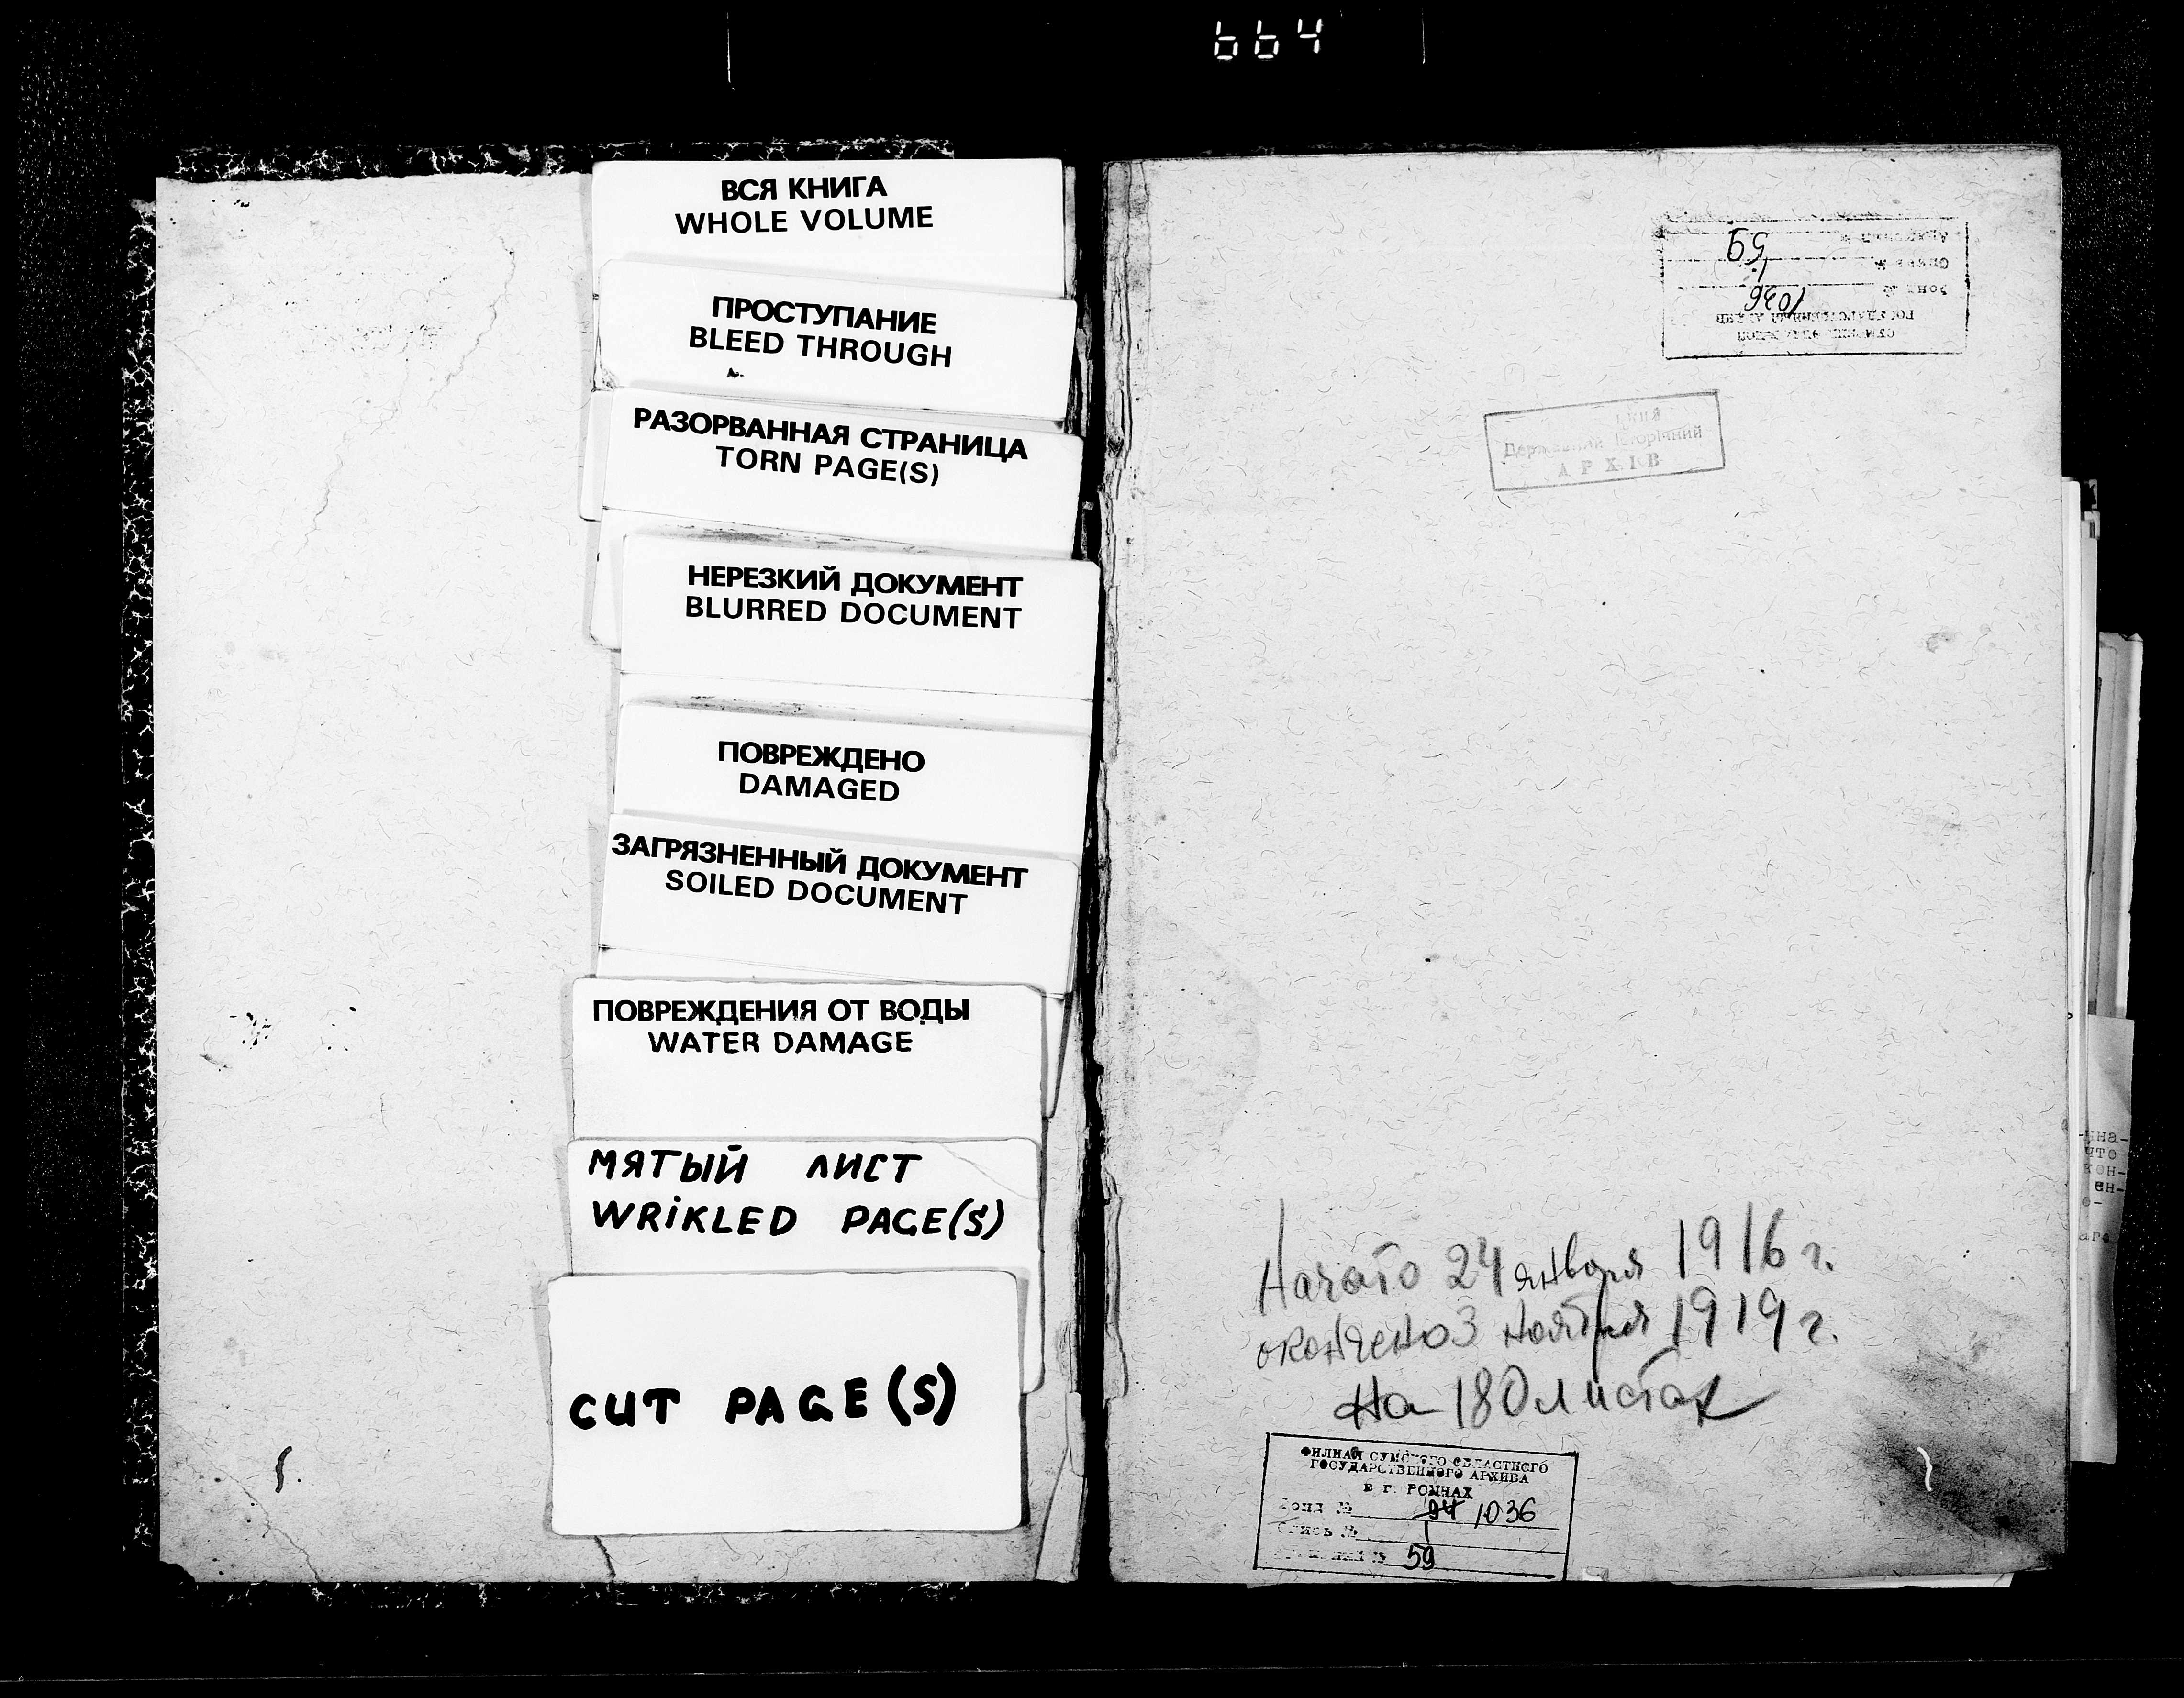 664
ВСЯ КНИГА
WHOLE VOLUME
ПРОСТУПАНИЕ
BLEED THROUGH
РАЗОРВАННАЯ СТРАНИЦА
TORN PAGE(S)
НЕРЕЗКИЙ ДОКУМЕНТ
BLURRED DOCUMENT
ПОВРЕЖДЕНО
DAMAGED
ЗАГРЯЗНЕННЫЙ ДОКУМЕНТ
SOILED DOCUMENT
ПОВРЕЖДЕНИЯ ОТ ВОДЫ
WATER DAMAGE
МЯТЫЙ ЛИСТ
WRiKLED PAGE(S)
CUT PAGE(S)
ГОСУДАРСТВЕННЫЙ АРХИВ
Фонд № 1036
Опись № 1
59
Державний Історічний
АРХІВ
Начато 24 января 1916 г.
окончено 3 ноября 1919 г.
На 180 листах
ФИЛИАЛ СУМСКОГО ОБЛАСТНОГО
ГОСУДАРСТВЕННОГО АРХИВА
В Г. РОМНАХ
Фонд № 94 1036
Опись № 1
59
что